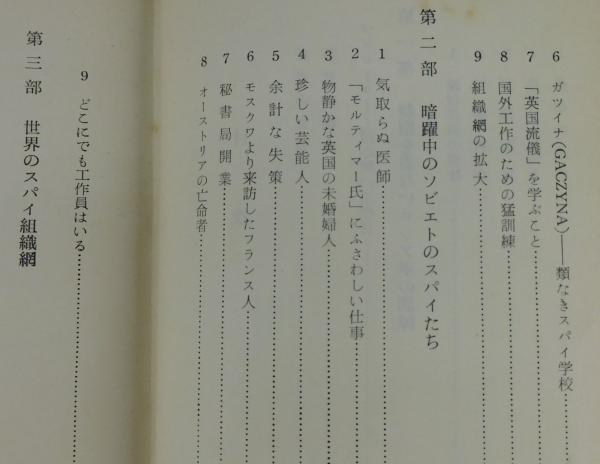 6 ガツイナ(GACZYNA)——類なきスパイ学校
7 「英国流儀」を学ぶこと
8 国外工作のための猛訓練
9 組織網の拡大
第二部 暗躍中のソビエトのスパイたち
1 気取らぬ医師
2 「モルティマー氏」にふさわしい仕事
3 物静かな英国の未婚婦人
4 珍しい芸能人
5 余計な失策
6 モスクワより来訪したフランス人
7 秘書局開業
8 オーストリアの亡命者
9 どこにでも工作員はいる
第三部 世界のスパイ組織網